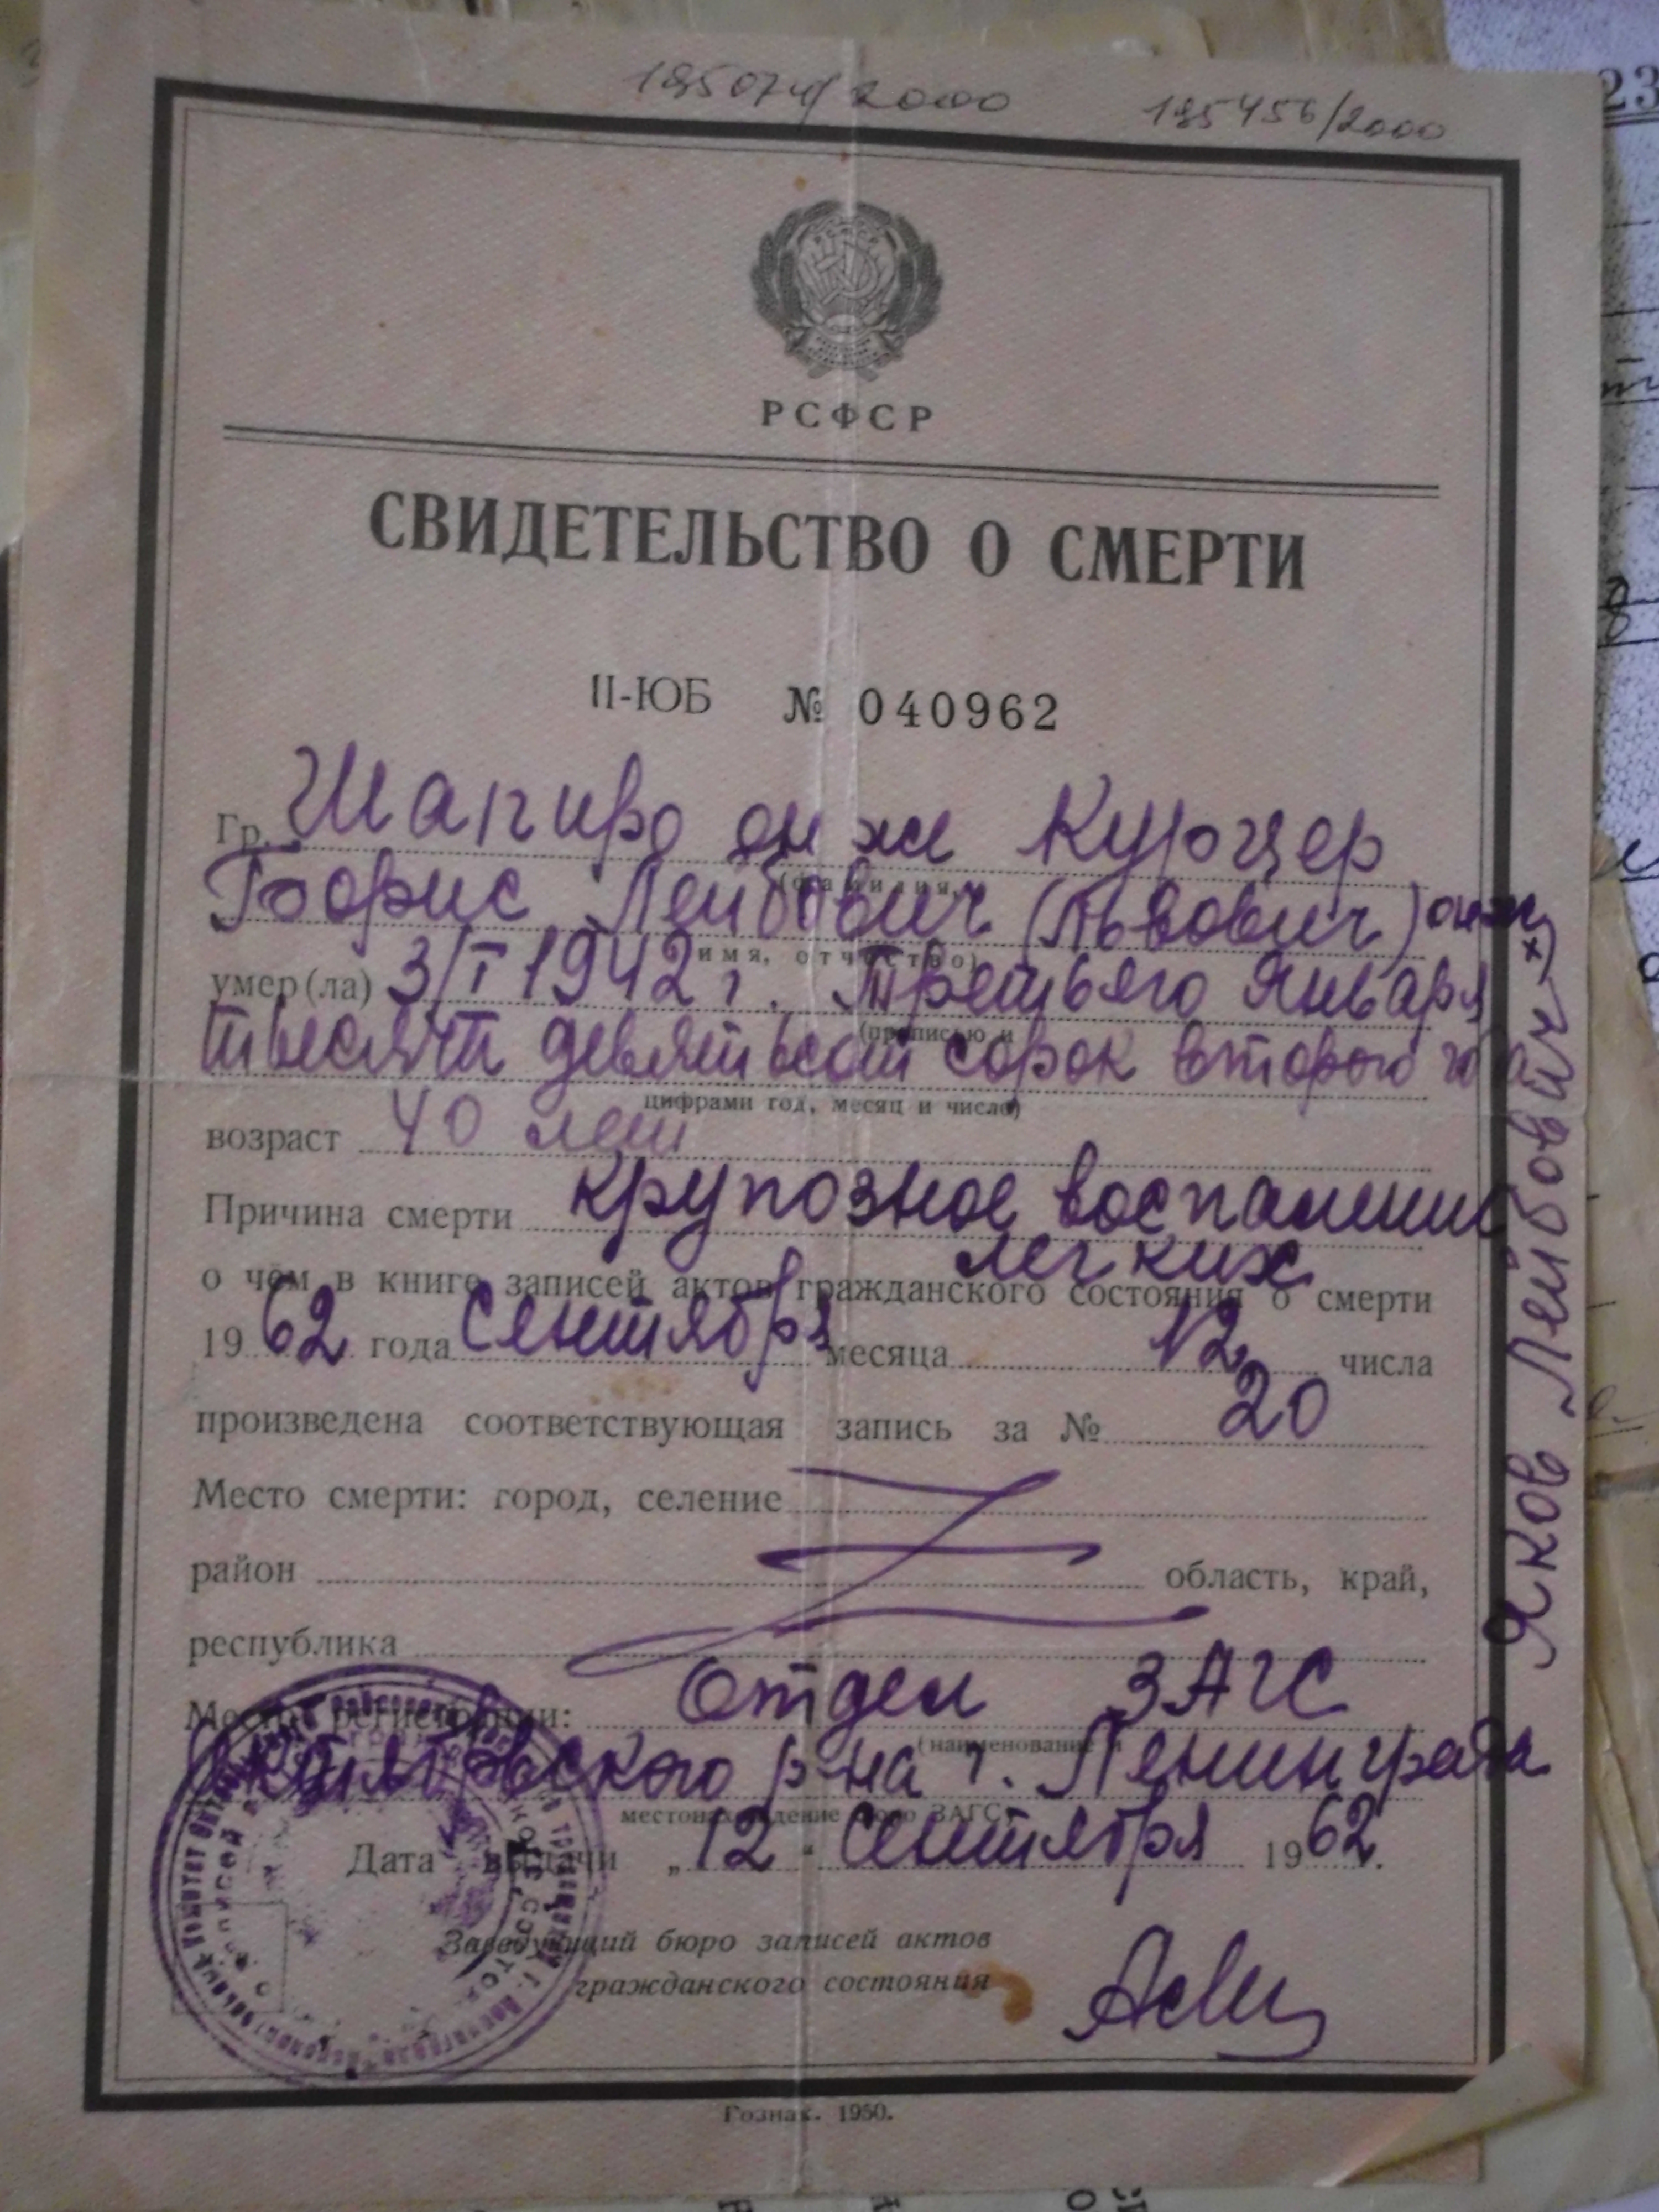 195074/2000 195456/2000
РСФСР
СВИДЕТЕЛЬСТВО О СМЕРТИ
II-ЮБ № 040962
Гр. Шапиро он же Курцер
(фамилия,
Борис Лейбович (Львович) он же
имя, отчество)
умер(ла) 3/I 1942 г. Третьего января
(прописью и
тысяча девятьсот сорок второго года
цифрами год, месяц и число)
возраст 40 лет
Причина смерти крупозное воспаление
легких
о чём в книге записей актов гражданского состояния о смерти
1962 года сентября месяца 12 числа
произведена соответствующая запись за № 20
Место смерти: город, селение
район область, край,
республика
Место регистрации: Отдел ЗАГС
(наименование и
Октябрьского р-на г. Ленинграда
местонахождение бюро ЗАГС)
Дата выдачи „12“ сентября 1962 г.
Заведующий бюро записей актов
гражданского состояния
Гознак. 1950.
Яков Лейбович
23